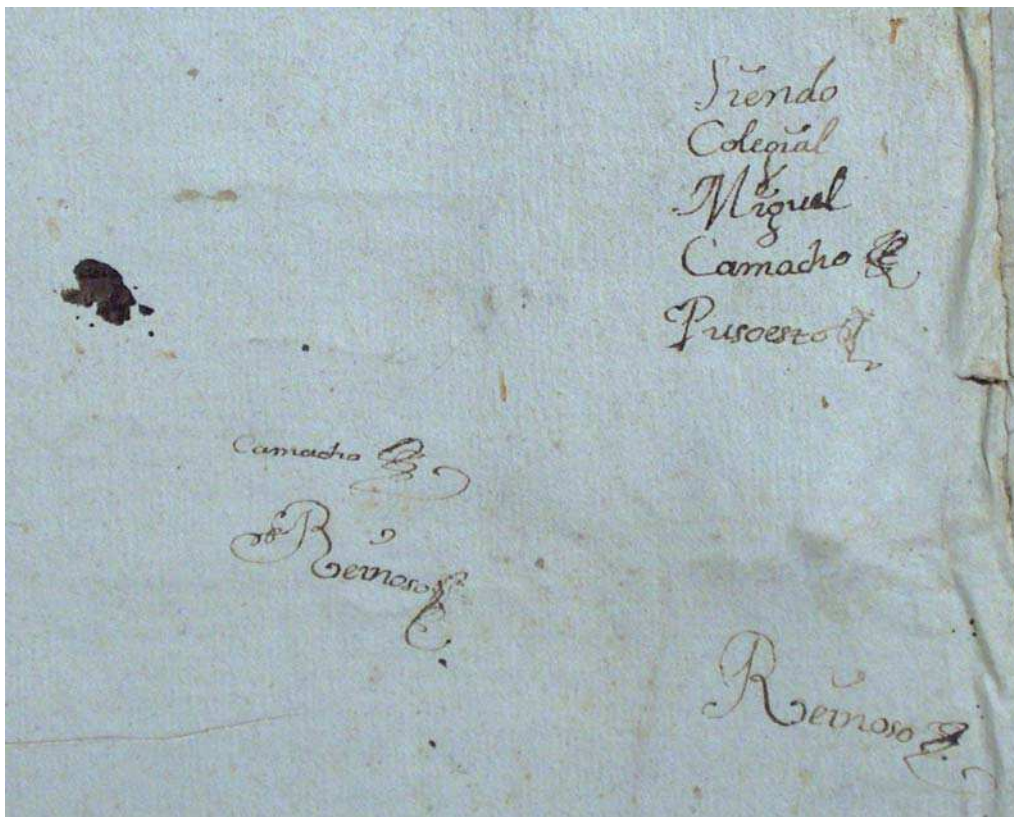 Siendo
Colegial
Miguel
Camacho
Pusoesto
Camacho
Reinoso
Reinoso